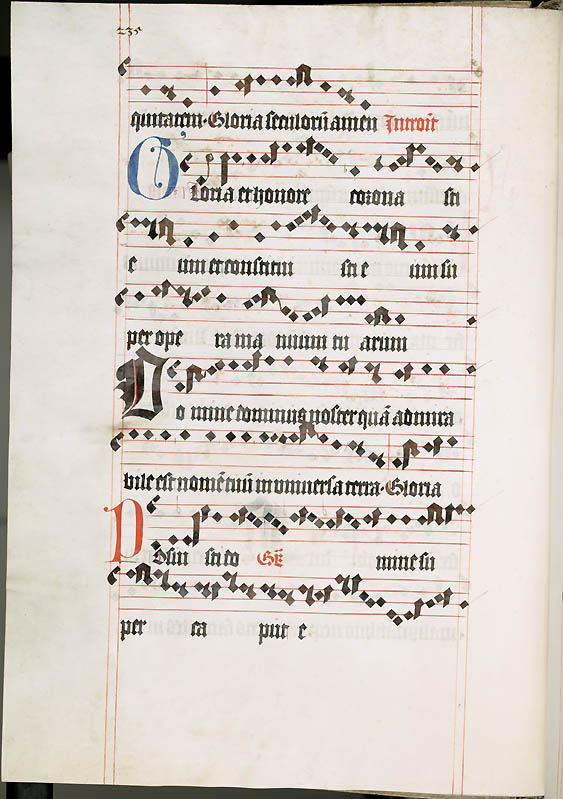 235
quitatem. Gloria seculorũ amen Introit
Gloria et honore corona sti
e um et constitui sti e um su
per ope ra ma nuum tu arum
Do mine dominus noster quã admira
bile est nomẽ tuũ in universa terra. Gloria
Posui sti do Gr̃ mine su
per ca put e